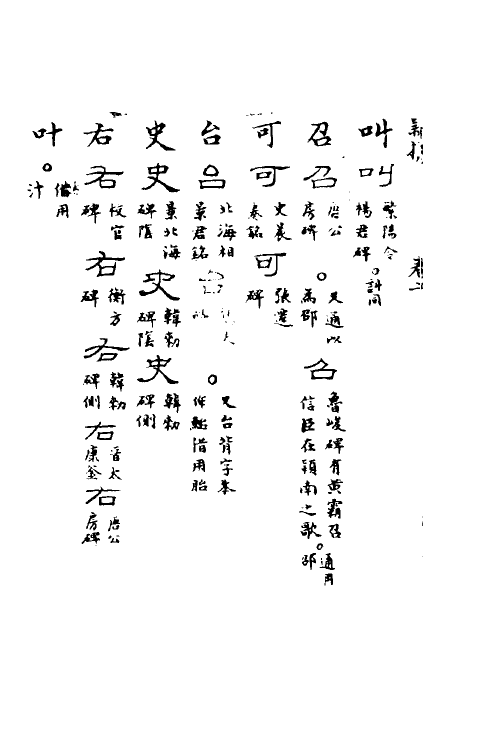 叫 叫 繁陽令楊君碑。訆同
召 召 唐公房碑。又通以為邵 召 魯峻碑有黄霸召信臣在潁南之歌。通用邵
可 可 史晨奏銘 可 張遷碑
台 台 北海相景君銘 台 。又台背字本作鮐借用胎
史 史 景北海碑陰 史 韓勅碑陰 史 韓勅碑側
右 右 校官碑 右 衡方碑 右 韓勅碑側 右 晋太康釜 右 唐公房碑
叶。借用汁